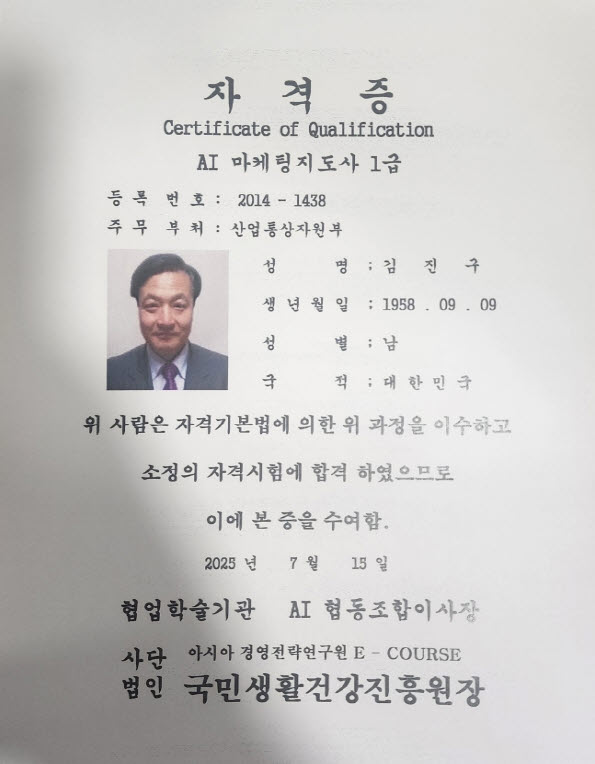 자 격 증
Certificate of Qualification
AI 마케팅지도사 1급
등 록 번 호 : 2014 - 1438
주 무 부 처 : 산업통상자원부
성 명 ; 김 진 구
생 년 월 일 : 1958 . 09 . 09
성 별 ; 남
국 적 ; 대 한 민 국
위 사람은 자격기본법에 의한 위 과정을 이수하고
소정의 자격시험에 합격 하였으므로
이에 본 증을 수여함.
2025 년 7 월 15 일
협업학술기관 AI 협동조합이사장
사단 아시아 경영전략연구원 E - COURSE
법인 국민생활건강진흥원장